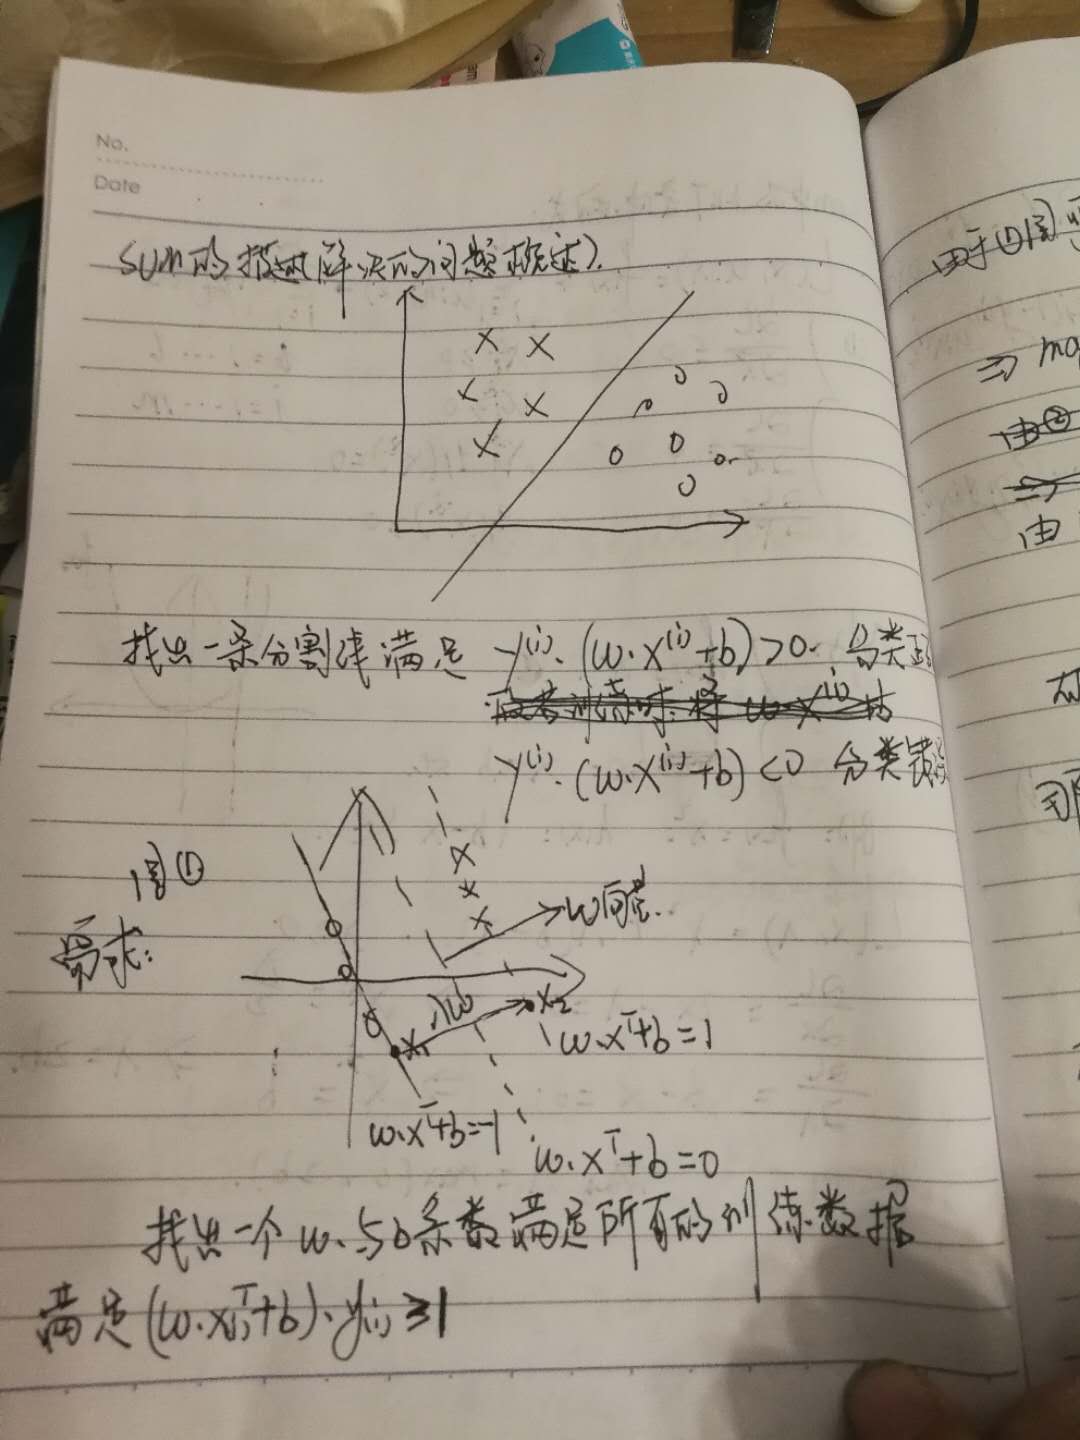 No.
Date
SVM的描述(解决的问题概述).
找出一条分割线满足 y⁽ⁱ⁾·(w·x⁽ⁱ⁾+b)>0. 分类正
y⁽ⁱ⁾·(w·x⁽ⁱ⁾+b)<0 分类错误
图①
需求:
w向量.
λw
x₁
x₂
w·xᵀ+b=1
w·xᵀ+b=-1
w·xᵀ+b=0
找出一个w、与b参数满足所有的训练数据
满足(w·x₍ᵢ₎ᵀ+b)·y₍ᵢ₎≥1
由于①图
⇒ ma
由